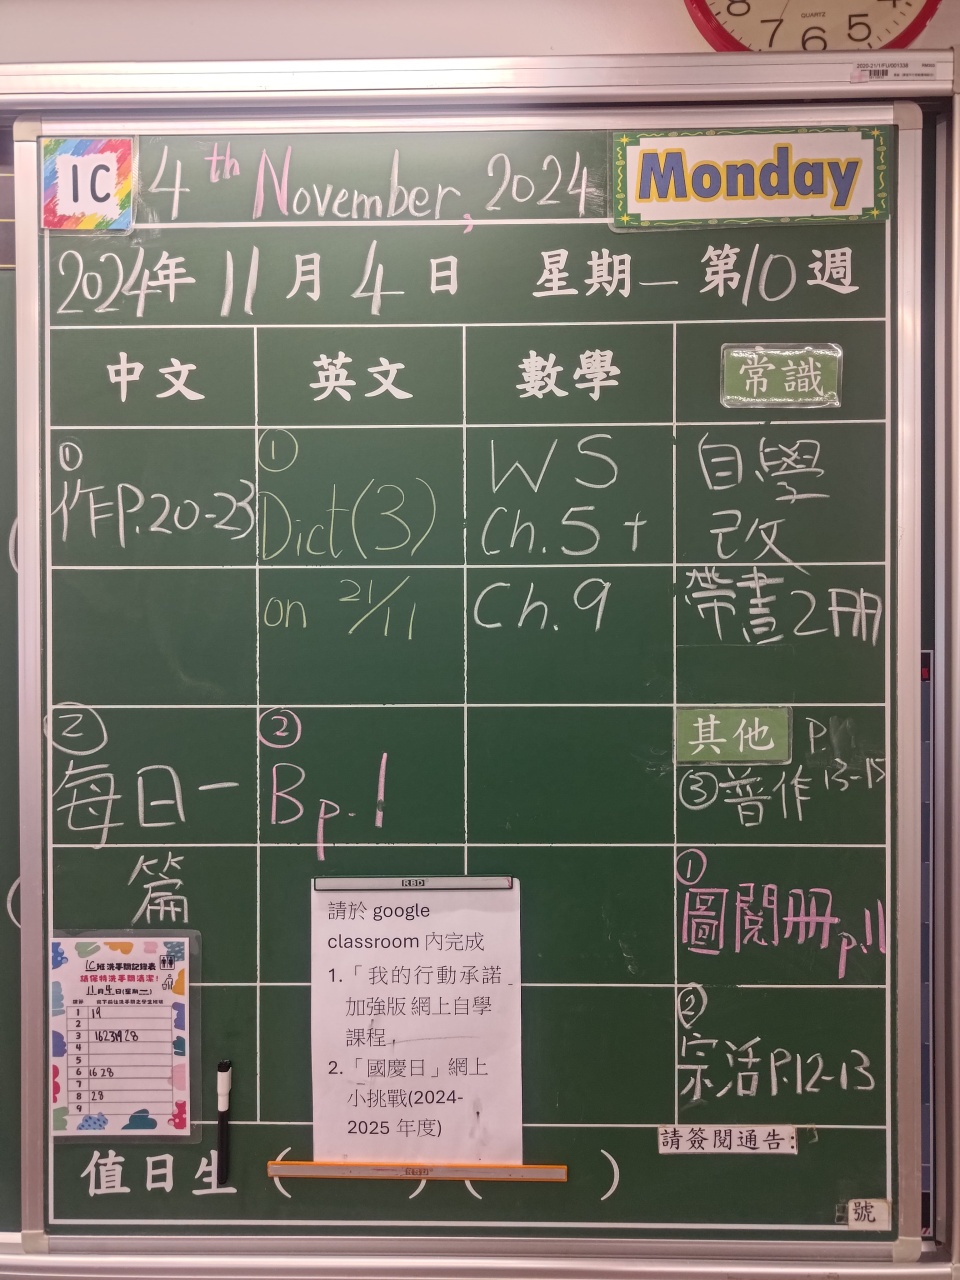 8 7 6 5
QUARTZ
1C
4th November, 2024
Monday
2024年 11月 4日 星期一 第10週
中文
英文
數學
常識
①
作P.20-23
①
Dict(3)
on 21/11
WS
Ch.5+
Ch.9
自學
改
帶書2冊
②
每日一
篇
②
B p.1
其他
P.
③普作 13-15
①
圖閱冊p.11
②
宗活P.12-13
RBD
請於 google
classroom 內完成
1.「我的行動承諾
加強版 網上自學
課程
2.「國慶日」網上
小挑戰(2024-
2025 年度)
1C班洗手間記錄表
請保持洗手間清潔!
11月4日(星期一)
1 19
2
3 16231928
4
5
6 16 28
7
8 28
9
請簽閱通告:
值日生 ( ) ( )
號